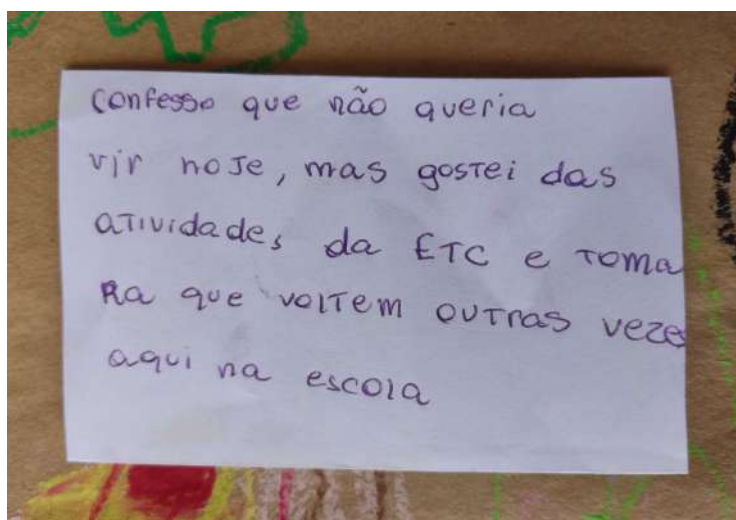 confesso que não queria
vir hoje, mas gostei das
atividades da ETC e toma
Ra que voltem outras vezes
aqui na escola